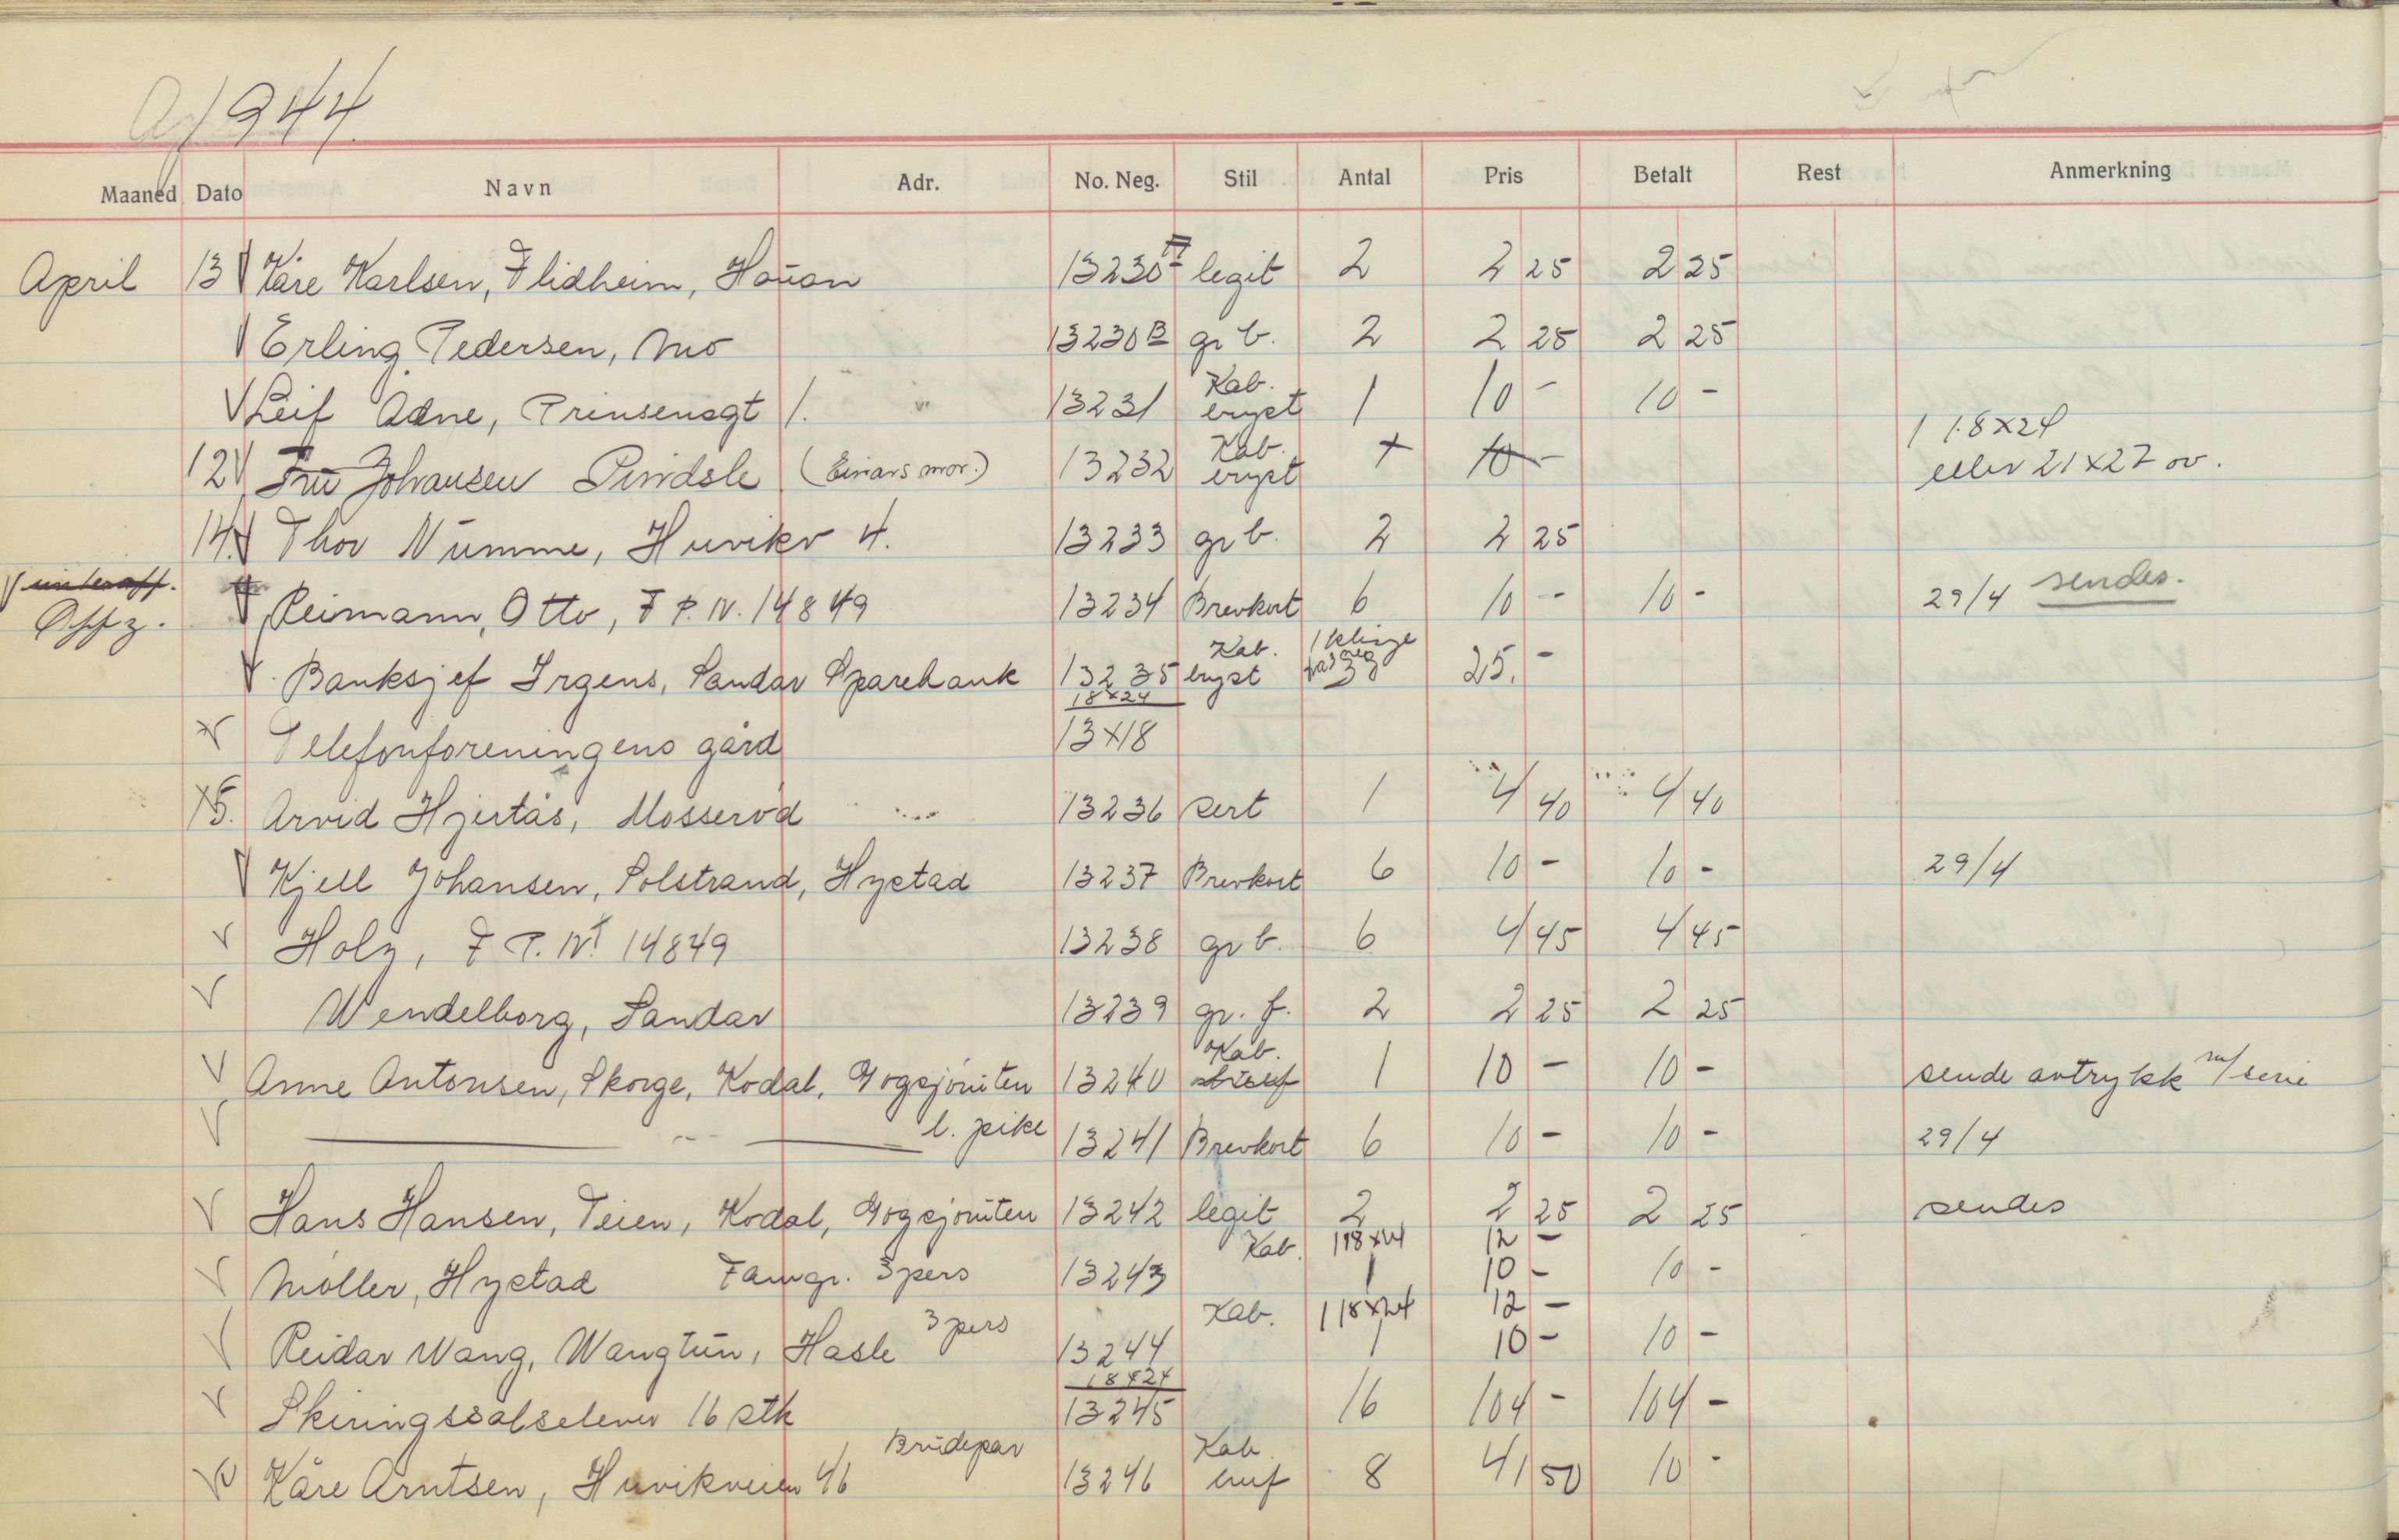 1944
Maaned Dato Navn Adr. No. Neg. Stil Antal Pris Betalt Rest Anmerkning
April 13 Kåre Karlsen, Flidheim, Hauan 13230 legit 2 2 25 2 25
Erling Pedersen, Mo 13230 B gr b. 2 2 25 2 25
Leif Adne, Prinsensgt 1. 13231 Kab. bryst 1 10 - 10 -
12 Fru Johansen Pindsle (Einars mor.) 13232 Kab. bryst 10 - 1 18x24 eller 21x27 ov.
14. Thor Numme, Huvikv 4. 13233 gr b. 2 2 25
unteroff.
Offz. Reimann, Otto, F P. N. 14849 13234 Brevkort 6 10 - 10 - 29/4 sendes.
Banksjef Irgens, Sandar Sparebank 13235 18x24 Kab. bryst 3 25. -
Telefonforeningens gård 13x18
15. Arvid Hjertås, Mosserød 13236 sert 1 4 40 4 40
Kjell Johansen, Solstrand, Hystad 13237 Brevkort 6 10 - 10 - 29/4
Holz, F P. Nr 14849 13238 gr b. 6 4 45 4 45
Wendelborg, Sandar 13239 gr. f. 2 2 25 2 25
Anne Antonsen, Skorge, Kodal, Gogsjøruten 13240 Kab. 1 10 - 10 - sende avtrykk m/serie
l. pike 13241 Brevkort 6 10 - 10 - 29/4
Hans Hansen, Teien, Kodal, Gogsjøruten 13242 legit 2 2 25 2 25 sendes
1 18x24 12 -
Møller, Hystad Famgr. 3 pers 13243 Kab. 1 10 - 10 -
1 18x24 12 -
Reidar Wang, Wangtun, Hasle 3 pers 13244 Kab. 1 10 - 10 -
18x24
Skiringssalselever 16 stk 13245 16 104 - 104 -
Kåre Arntsen, Huvikveien 46 Brudepar 13246 Kab 8 41 50 10 -